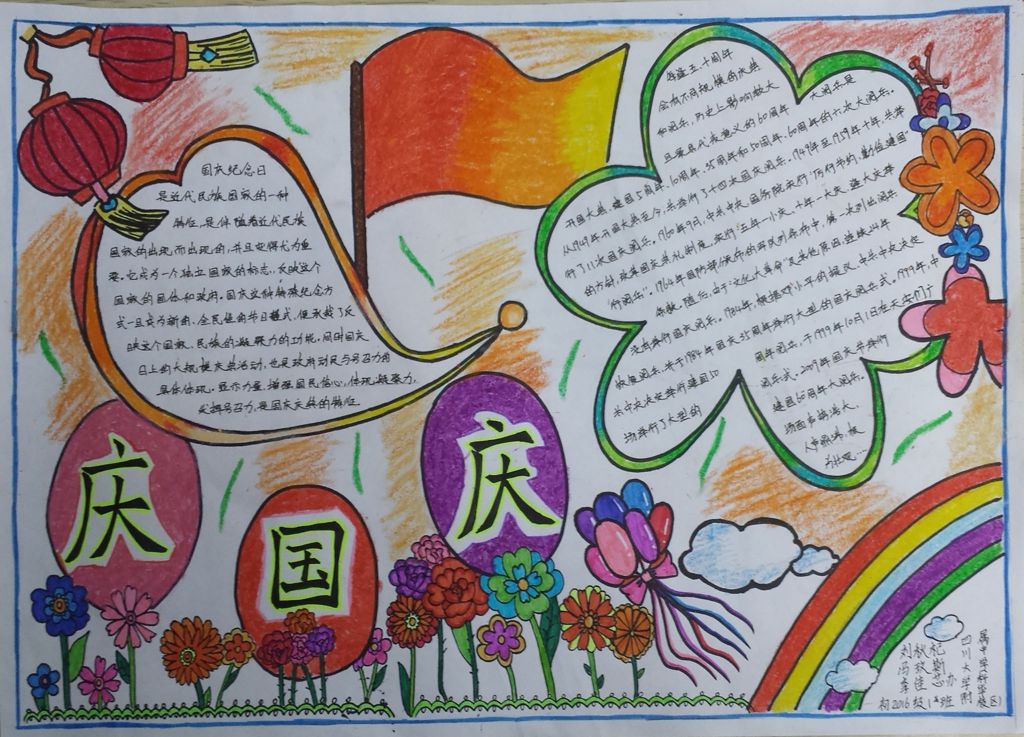 国庆纪念日
是近代民族国家的一种
特征,是伴随着近代民族
国家的出现而出现的,并且变得尤为重
要。它成为一个独立国家的标志,反映这个
国家的国体和政府。国庆这种特殊纪念方
式一旦成为新的、全民性的节日模式,便承载了反
映这个国家、民族的凝聚力的功能,同时国庆
日上的大规模庆典活动,也是政府动员与号召力的
具体体现。显示力量、增强国民信心,体现凝聚力,
发挥号召力,是国庆庆典的特征。
每逢五、十周年
会有不同规模的庆典
和阅兵,历史上影响较大
且最具代表意义的60周年 大阅兵是
开国大典、建国5周年、10周年、35周年和50周年、60周年的六次大阅兵。
从1949年开国大典至今,共举行了十四次国庆阅兵。1949年至1959年十年,共举
行了11次国庆阅兵。1960年9月,中共中央、国务院
的方针,改革国庆典礼制度,实行“五年一小庆、十年一大庆,逢大庆举
行阅兵”。
没有举行国庆阅兵。
恢复阅兵,并于1984年国庆35周年举行大型的国庆阅兵式。1999年,中
共中央决定举行建国50 周年阅兵,于1999年10月1日在天安门广
场举行了大型的 阅兵式。2009年国庆并举行
建国60周年大阅兵。
场面声势浩大、
人声鼎沸,极
为壮观…
庆 国 庆
四川大学附
属中学科学
校区
初2016级1班